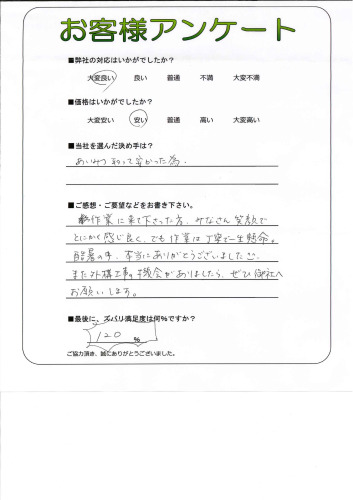 お客様アンケート
■弊社の対応はいかがでしたか?
大変良い 良い 普通 不満 大変不満
■価格はいかがでしたか?
大変安い 安い 普通 高い 大変高い
■当社を選んだ決め手は?
あいみつ 和って安かった為.
■ご感想・ご要望などをお書き下さい。
作業に来て下さった方、みなさん笑顔で
とにかく感じ良く、でも作業は丁寧で一生懸命。
酷暑の中、本当にありがとうございましたm
また外構工事の機会がありましたら、ぜひ御社へ
お願いします。
■最後に、ズバリ満足度は何%ですか?
120 %
ご協力頂き、誠にありがとうございました。